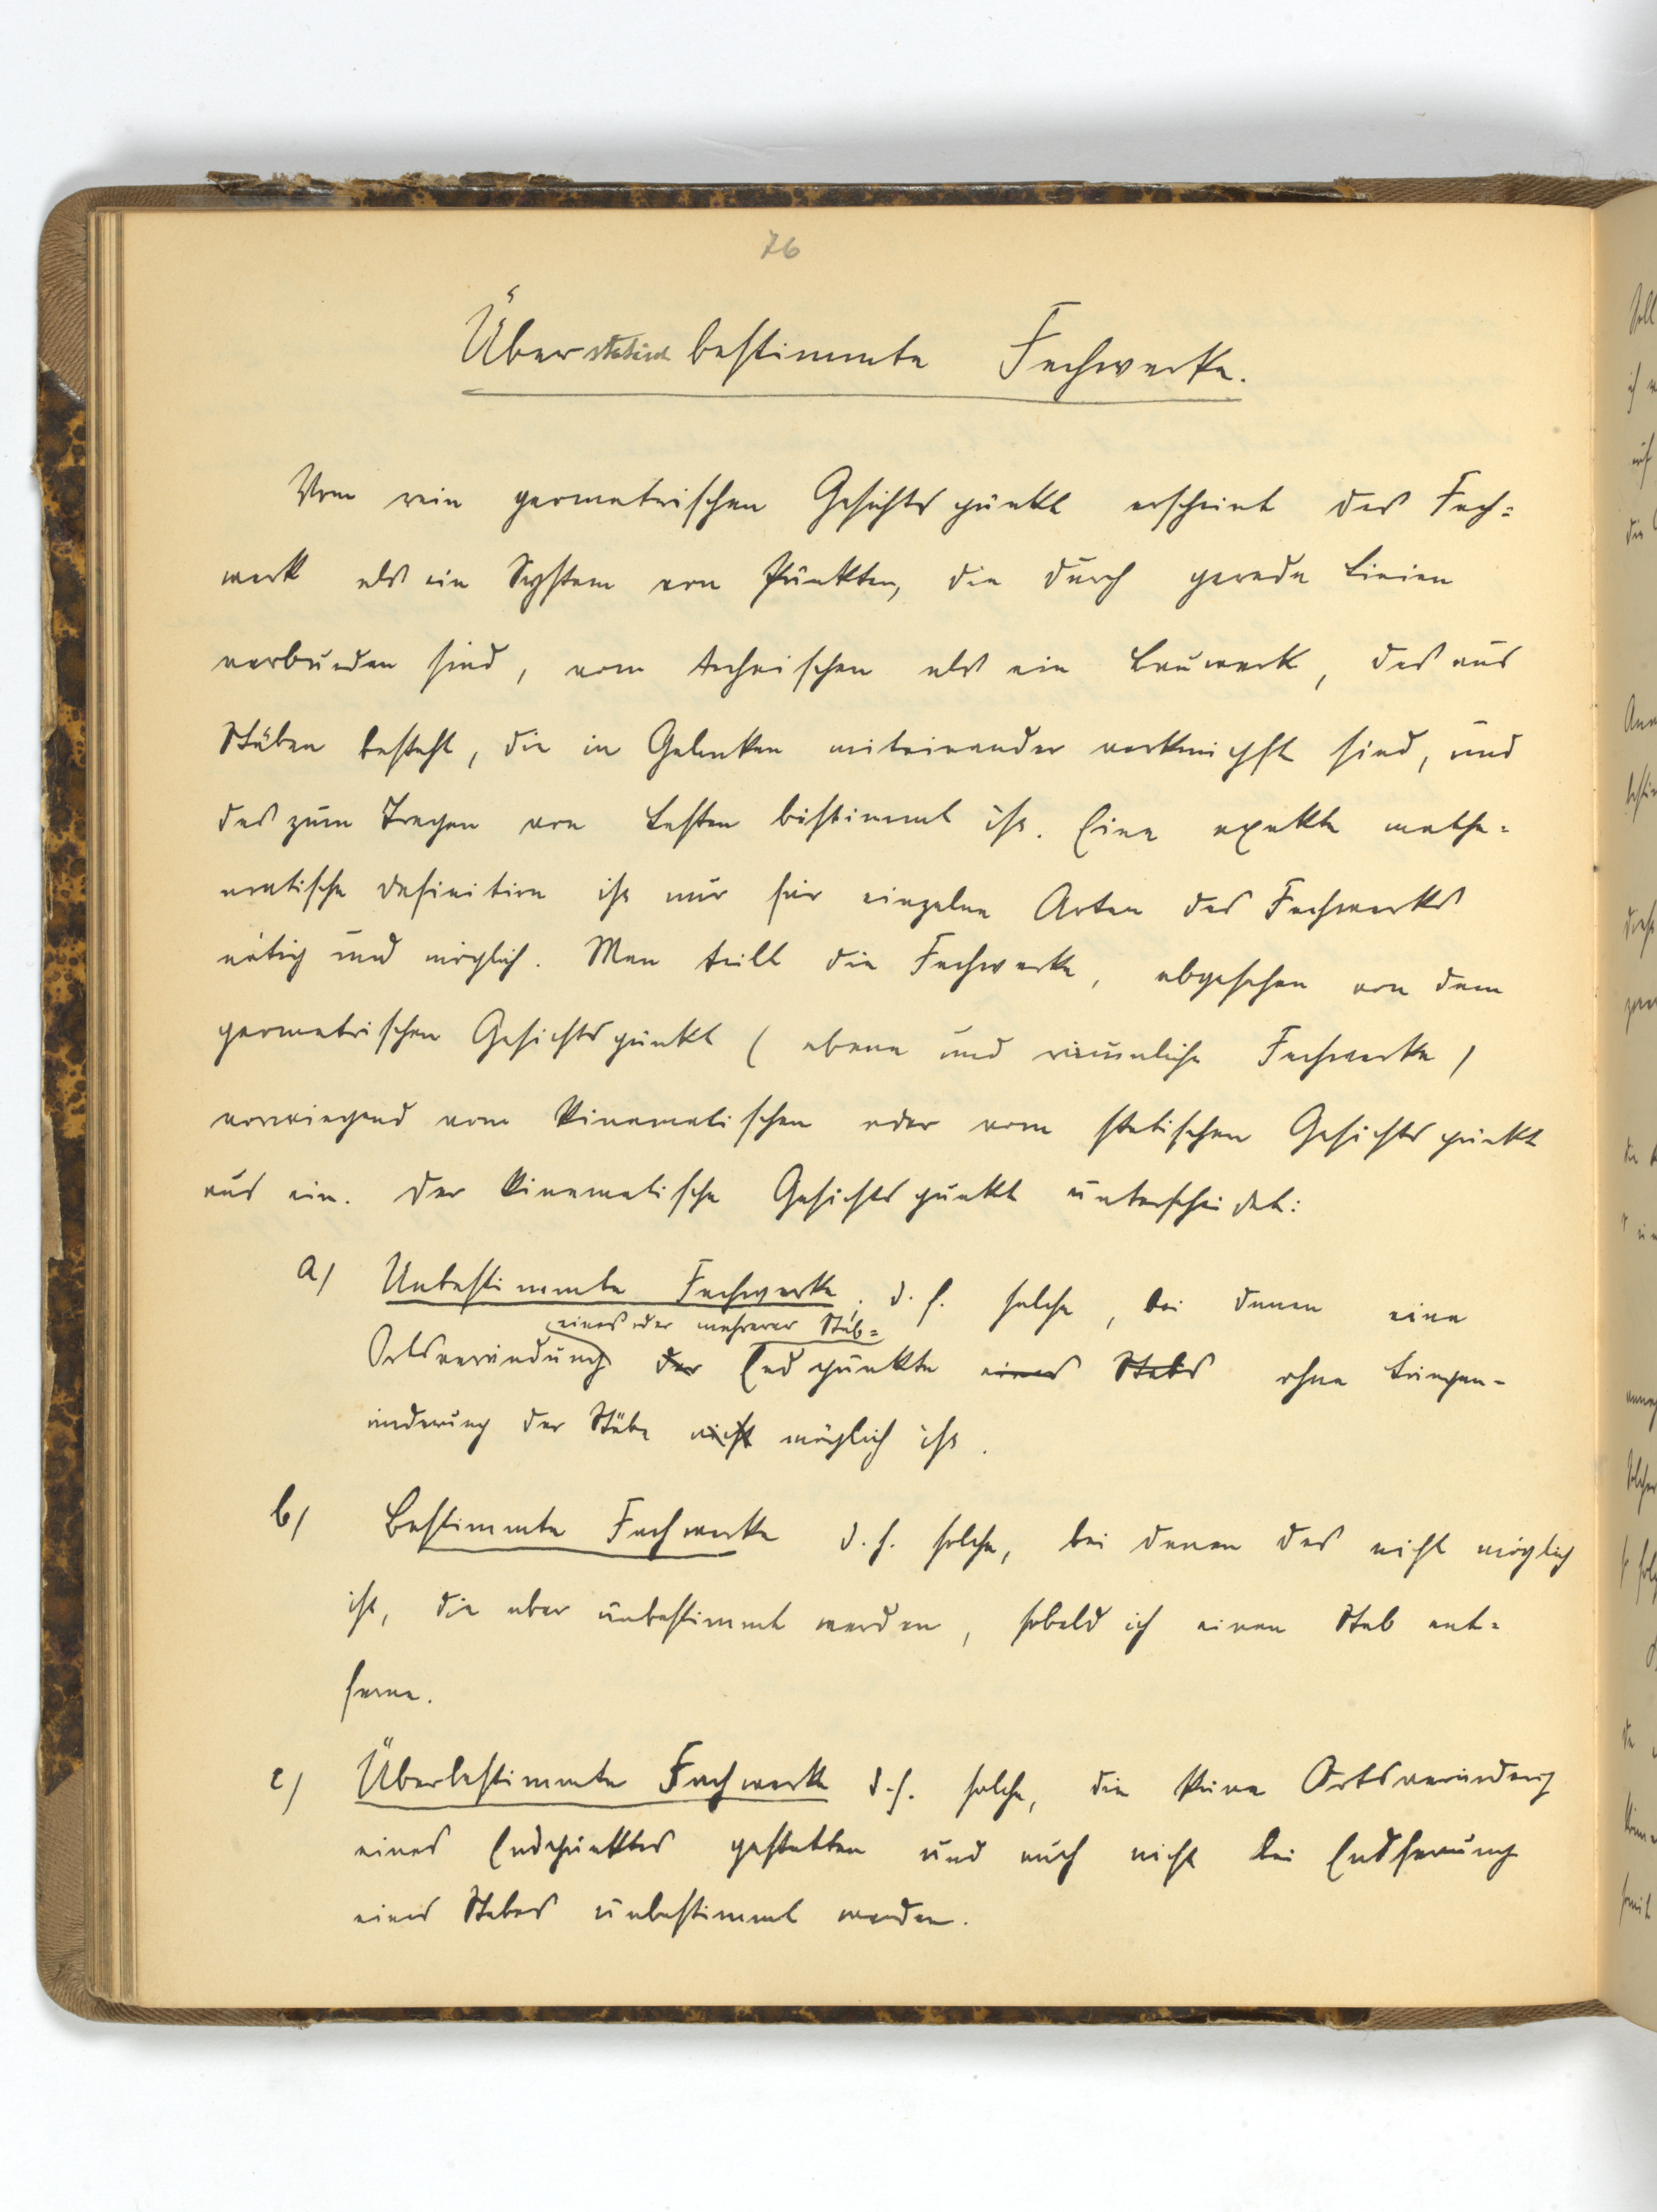 76
Über statisch bestimmte Fachwerke.
Vom rein geometrischen Gesichtspunkt erscheint das Fach=
werk als ein System von Punkten, die durch gerade Linien
verbunden sind, vom technischen als ein Bauwerk, das aus
Stäben besteht, die in Gelenken miteinander verknüpft sind, und
das zum Tragen von Lasten bestimmt ist. Eine exakte mathe=
matische Definition ist nur für einzelne Arten des Fachwerks
nötig und möglich. Man teilt die Fachwerke, abgesehen von dem
geometrischen Gesichtspunkt (ebene und räumliche Fachwerke)
vorwiegend vom kinematischen oder vom statischen Gesichtspunkt
aus ein. Der kinematische Gesichtspunkt unterscheidet:
a) Unbestimmte Fachwerke, d. h. solche, bei denen eine
eines oder mehrerer Stab=
Ortsveränderung der Endpunkte eines Stabs ohne Längen-
änderung der Stäbe nicht möglich ist.
b) Bestimmte Fachwerke d. h. solche, bei denen das nicht möglich
ist, die aber unbestimmt werden, sobald ich einen Stab ent=
ferne.
c) Überbestimmte Fachwerke d. h. solche, die keine Ortsveränderung
eines Endpunktes gestatten und auch nicht bei Entfernung
eines Stabes unbestimmt werden.